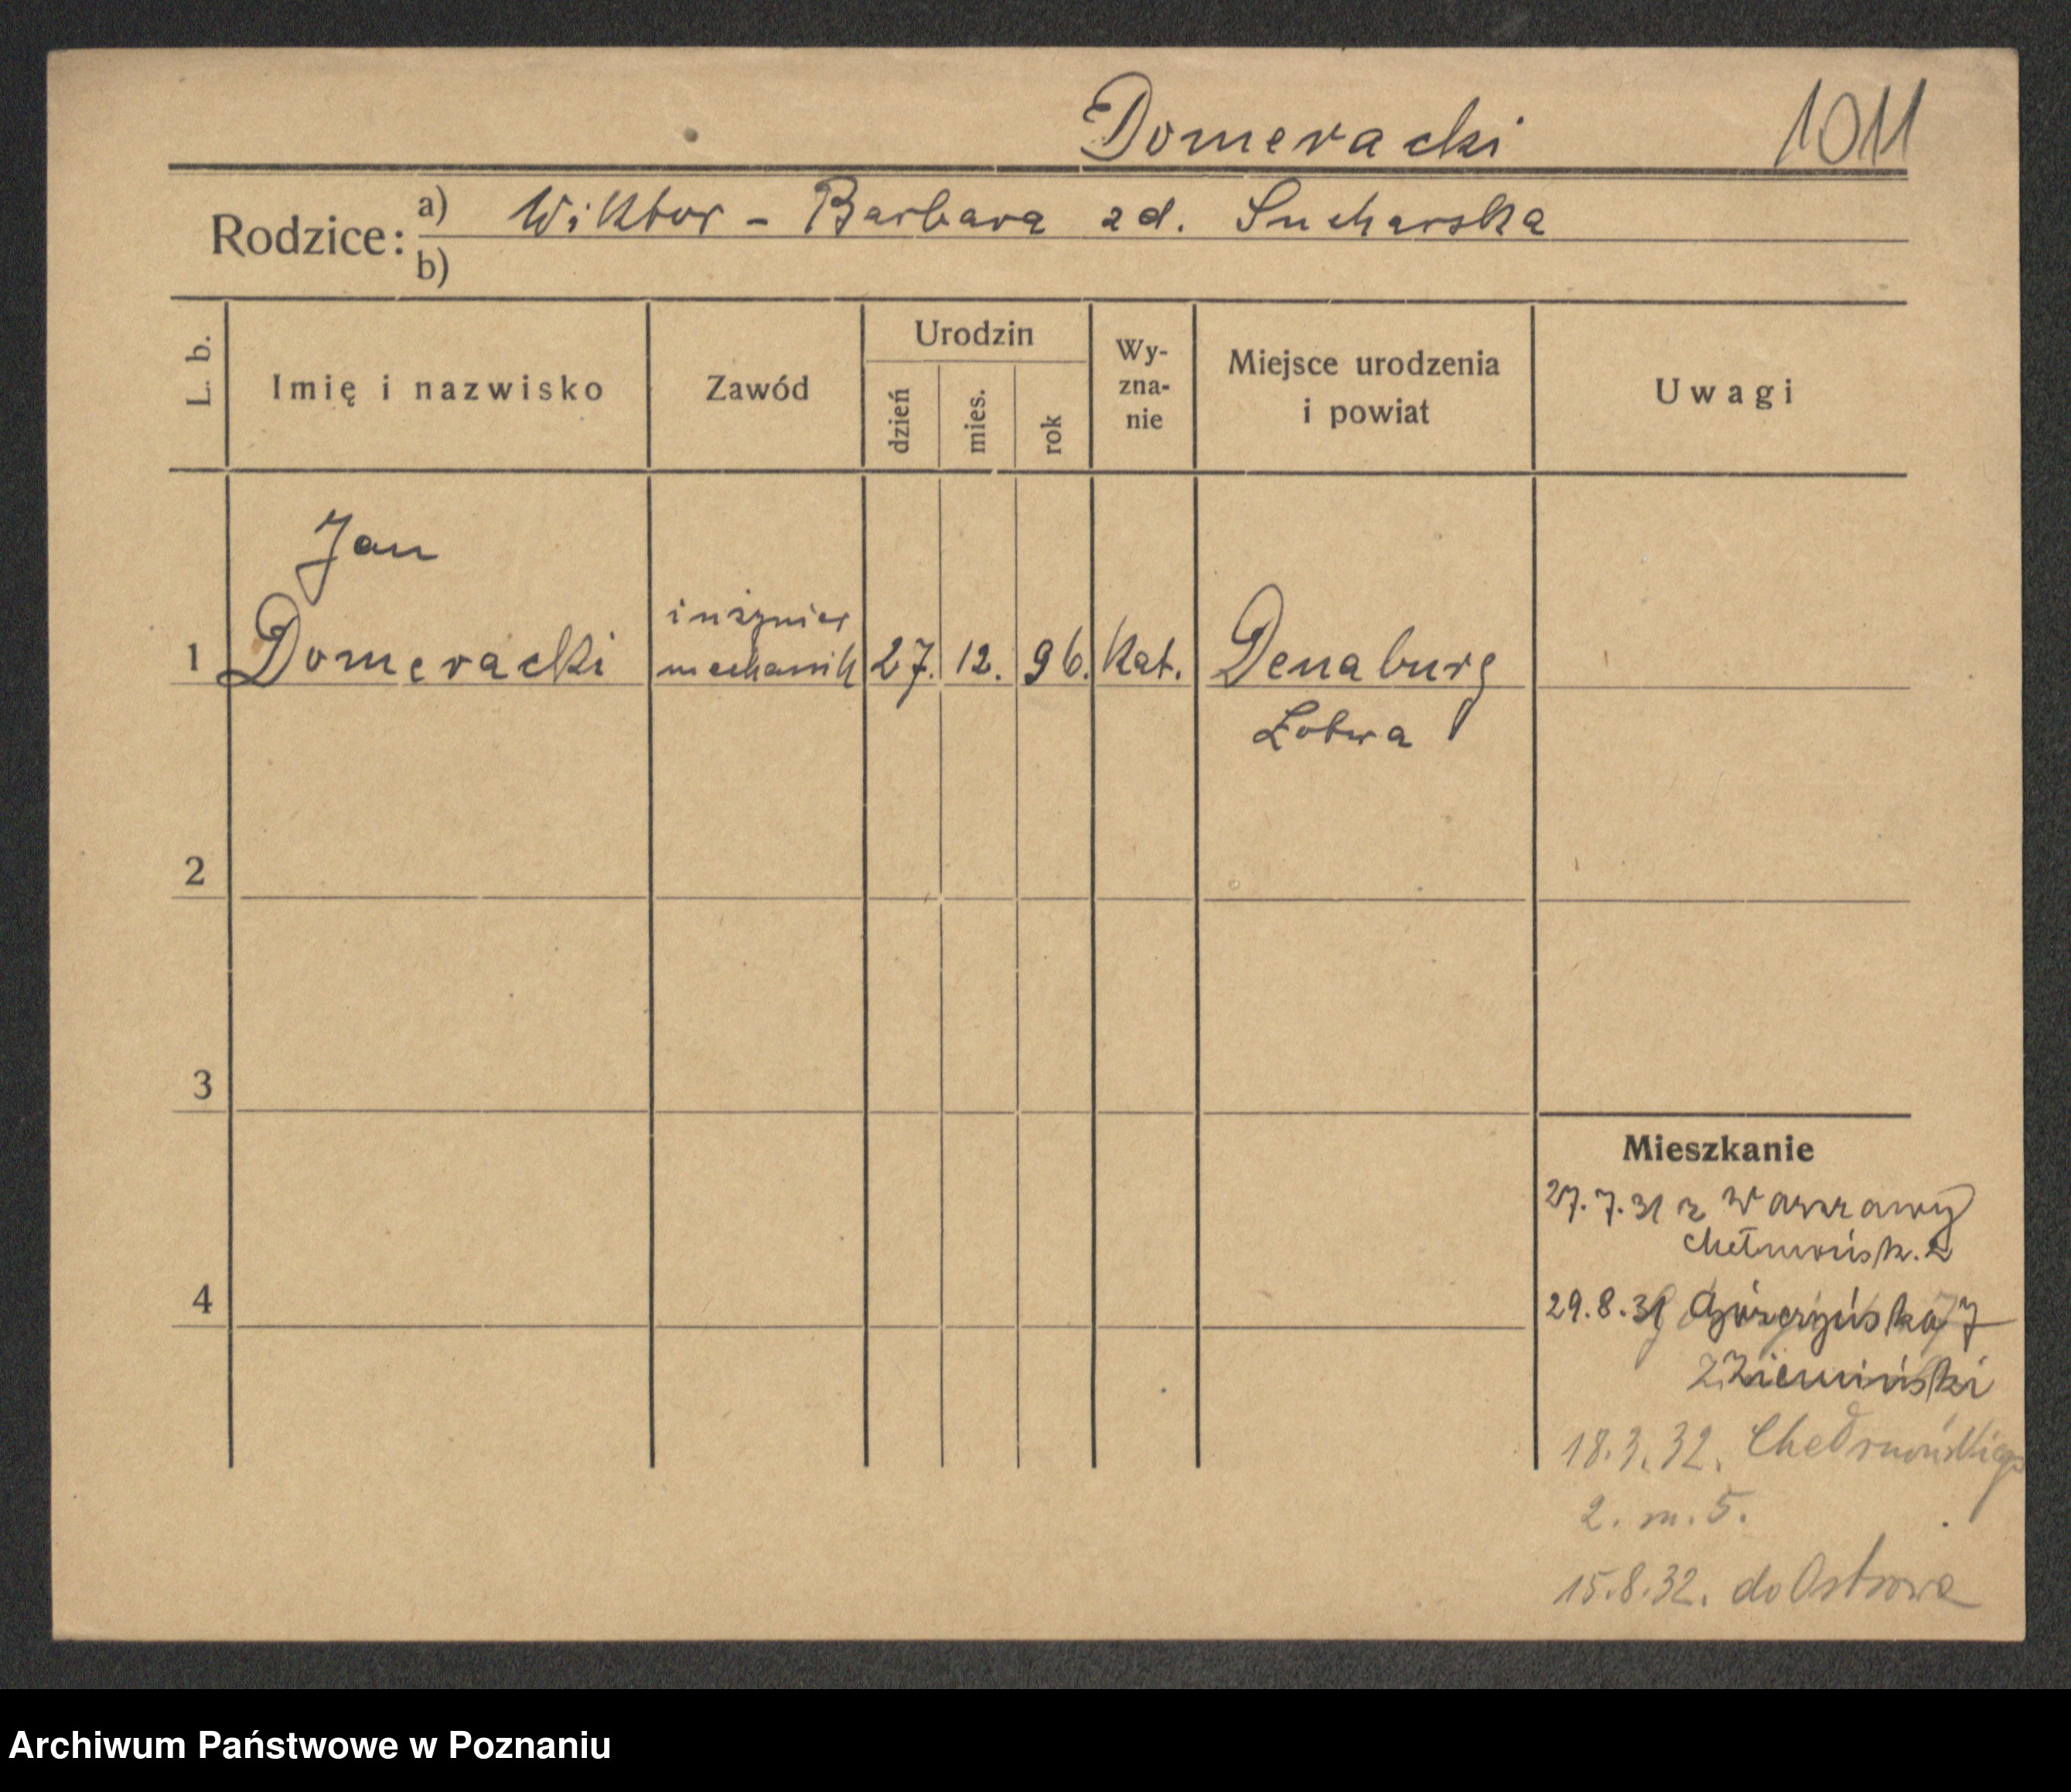 Domeracki 1011
Rodzice: a) Wiktor - Barbara zd. Sucharska
b)
L. b. Imię i nazwisko Zawód Urodzin dzień mies. rok Wy-zna-nie Miejsce urodzenia i powiat Uwagi
Jan
inżynier
1 Domeracki mechanik 27. 12. 96. kat. Denaburg
Łotwa
2
3
Mieszkanie
27.7.31 z Warszawy
Chełmońsk. 2
4
29.8.31 Górczyńska 7
Ziemiński
18.3.32. Chełmońskiego
2. m. 5.
15.8.32. do Ostrowa
Archiwum Państwowe w Poznaniu